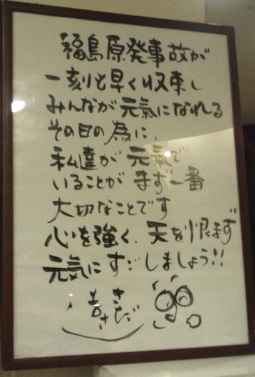 福島原発事故が
一刻も早く収束し
みんなが元気になれる
その日の為に、
私達が元気で
いることがまず一番
大切なことです
心を強く、天を恨まず
元気にすごしましょう!!